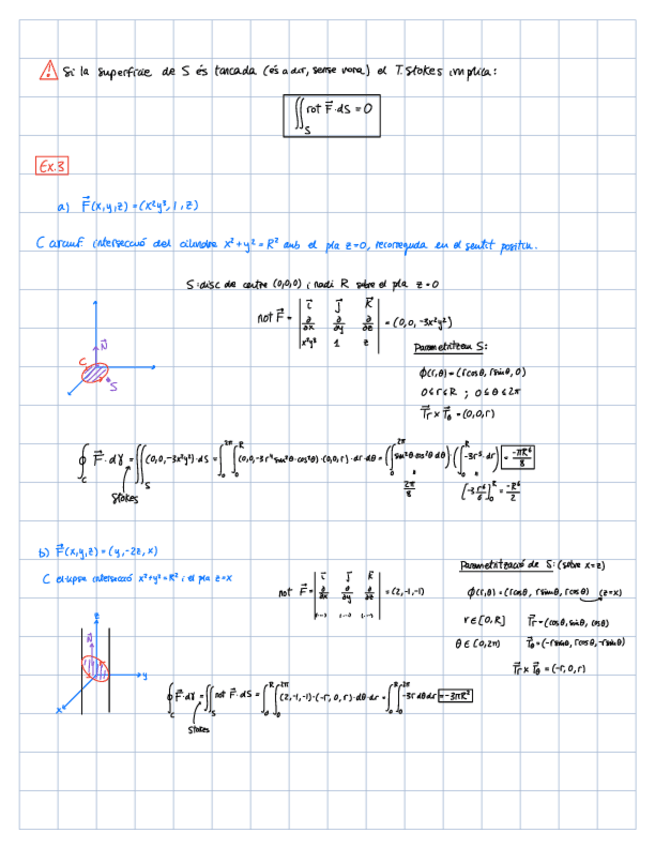 ⚠ Si la superfície de S és tancada (és a dir, sense vora) el T. Stokes implica:
∬_S rot F⃗·dS = 0
Ex.3
a) F⃗(x,y,z) = (x²y³, 1, z)
C arauf intersecció del cilindre x²+y² = R² amb el pla z=0, recorreguda en el sentit positiu.
S: disc de centre (0,0,0) i radi R sobre el pla z=0
rot F⃗ = | i⃗ j⃗ k⃗ | ∂/∂x ∂/∂y ∂/∂z | x²y³ 1 z | = (0,0,-3x²y²)
Parametritzem S:
ϕ(r,θ) = (rcosθ, rsinθ, 0)
0≤r≤R ; 0≤θ≤2π
T⃗r × T⃗θ = (0,0,r)
N⃗
C
S
∮_C F⃗·dγ = ∬_S (0,0,-3x²y²)·dS = ∫_0^2π ∫_0^R (0,0,-3r⁴sin²θ·cos²θ)·(0,0,r)·dr·dθ = (∫_0^2π sin²θ·cos²θ dθ)·(∫_0^R -3r⁵·dr) = -πR⁶/8
Stokes
2π/8
[-3 r⁶/6]_0^R = -R⁶/2
b) F⃗(x,y,z) = (y,-2z,x)
C el·lipse intersecció x²+y² = R² i el pla z=x
rot F⃗ = | i⃗ j⃗ k⃗ | ∂/∂x ∂/∂y ∂/∂z | (...) (...) (...) | = (2,-1,-1)
Parametrització de S: (sobre x=z)
ϕ(r,θ) = (rcosθ, rsinθ, rcosθ) (z=x)
r∈[0,R] T⃗r = (cosθ, sinθ, cosθ)
θ∈[0,2π) T⃗θ = (-rsinθ, rcosθ, -rsinθ)
T⃗r × T⃗θ = (-r,0,r)
z
N⃗
y
x
∮_C F⃗·dγ = ∬_S rot F⃗·dS = ∫_0^R ∫_0^2π (2,-1,-1)·(-r,0,r)·dθ·dr = ∫_0^R ∫_0^2π -3r dθdr = -3πR²
Stokes